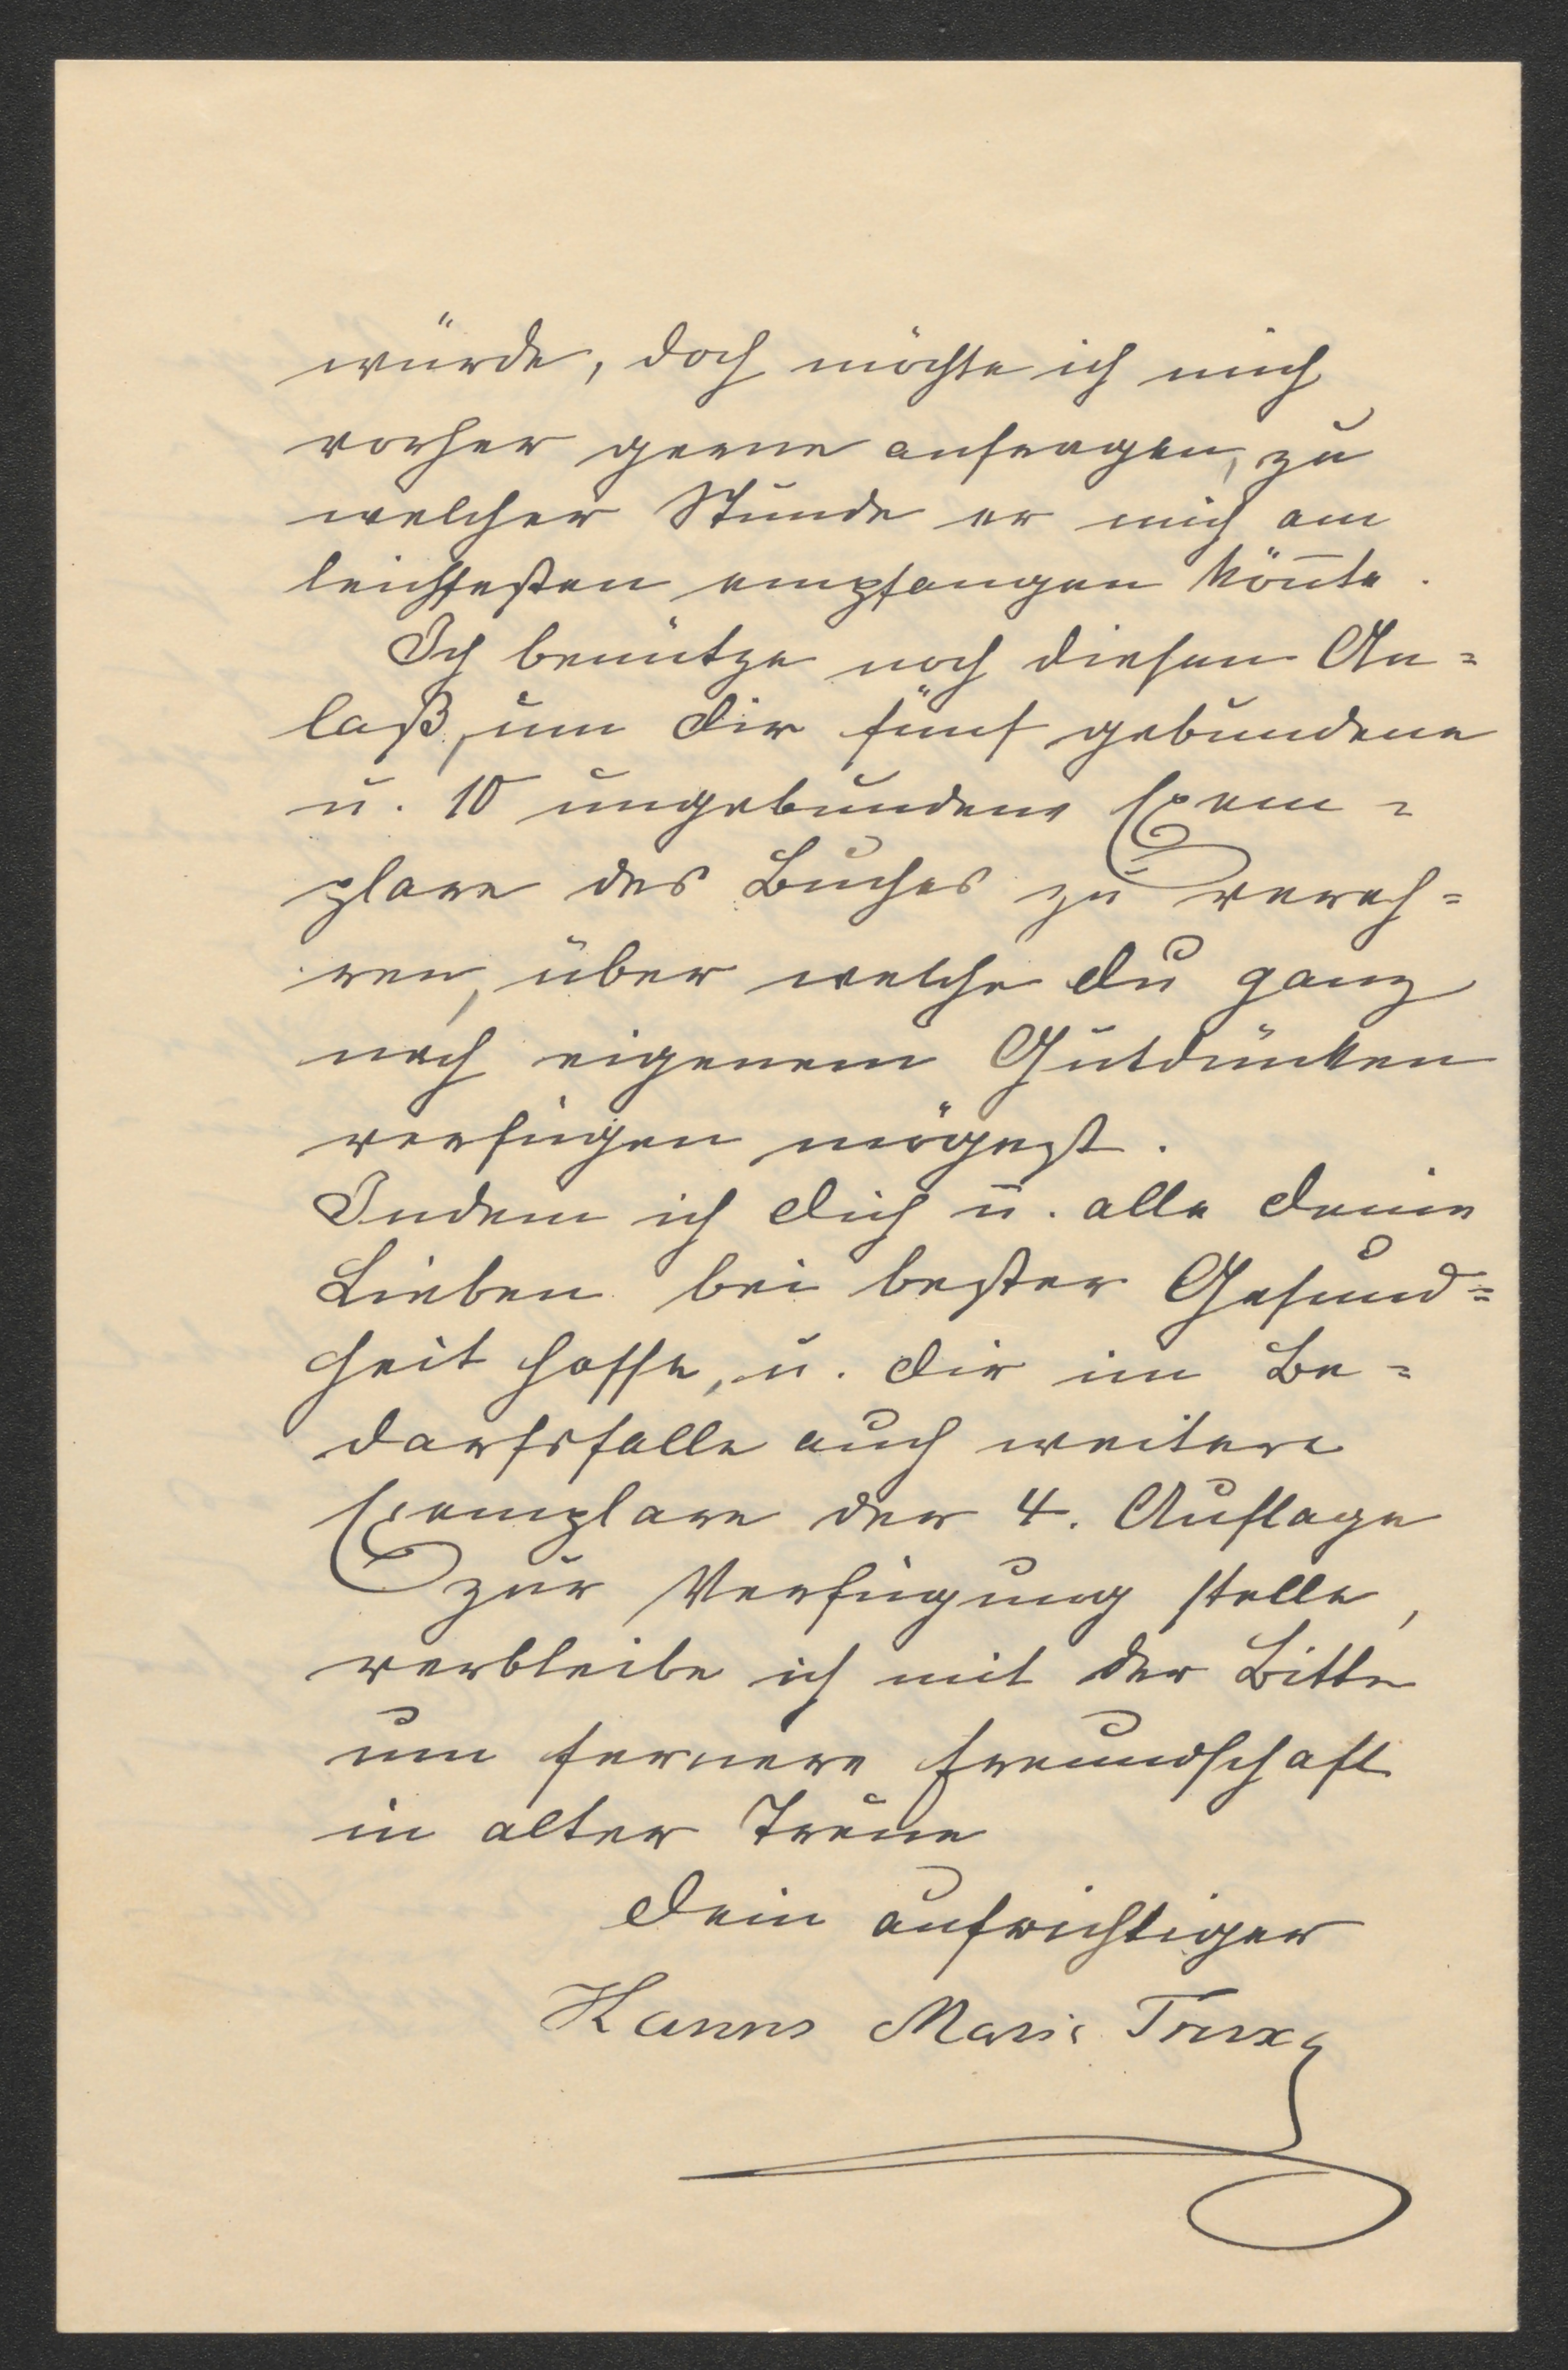 würde, doch möchte ich mich
vorher gerne anfragen, zu
welcher Stunde er mich am
leichtesten empfangen kön̄te.
Ich benütze noch diesen An=
laß, um Dir fünf gebundene
u. 10 ungebundene Exem=
plare des Buches zu vereh=
ren, über welche Du ganz
nach eigenem Gutdünken
verfügen mögest.
Indem ich Dich u. alle Deine
Lieben bei bester Gesund=
heit hoffe, u. Dir im Be=
darfsfalle auch weitere
Exemplare der 4. Auflage
zur Verfügung stelle,
verbleibe ich mit der Bitte
um fernere Freundschaft
in alter Treue
Dein aufrichtiger
Hanns Maria Truxa